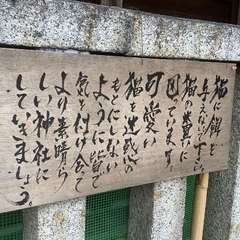 猫に餌を
与えないで下さい。
猫の糞害に
困っています。
可愛い
猫を迷惑の
もとにしない
ように皆で
気を付け合って
より素晴ら
しい神社に
していきましょう。